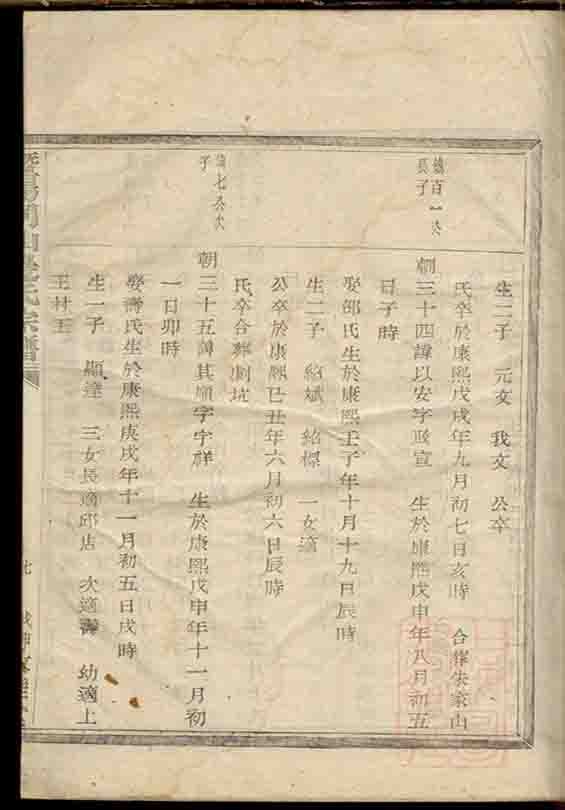 生二子 元文 我文 公卒
氏卒於康熙戊戌年九月初七日亥時 合葬朱家山
百一公
長子
朝三十四諱以安字 宣 生於康熙戊申年八月初五
日子時
娶邵氏生於康熙壬子年十月十九日辰時
生二子 紹斌 紹標 一女適
公卒於康熙己丑年六月初六日辰時
氏卒合葬 坑
七公次
子
朝三十五諱其順字字祥 生於康熙戊申年十一月初
一日卯時
娶壽氏生於康熙庚戌年十一月初五日戌時
生一子 顯達 三女長適邱店 次適壽 幼適上
王林王
氏宗譜